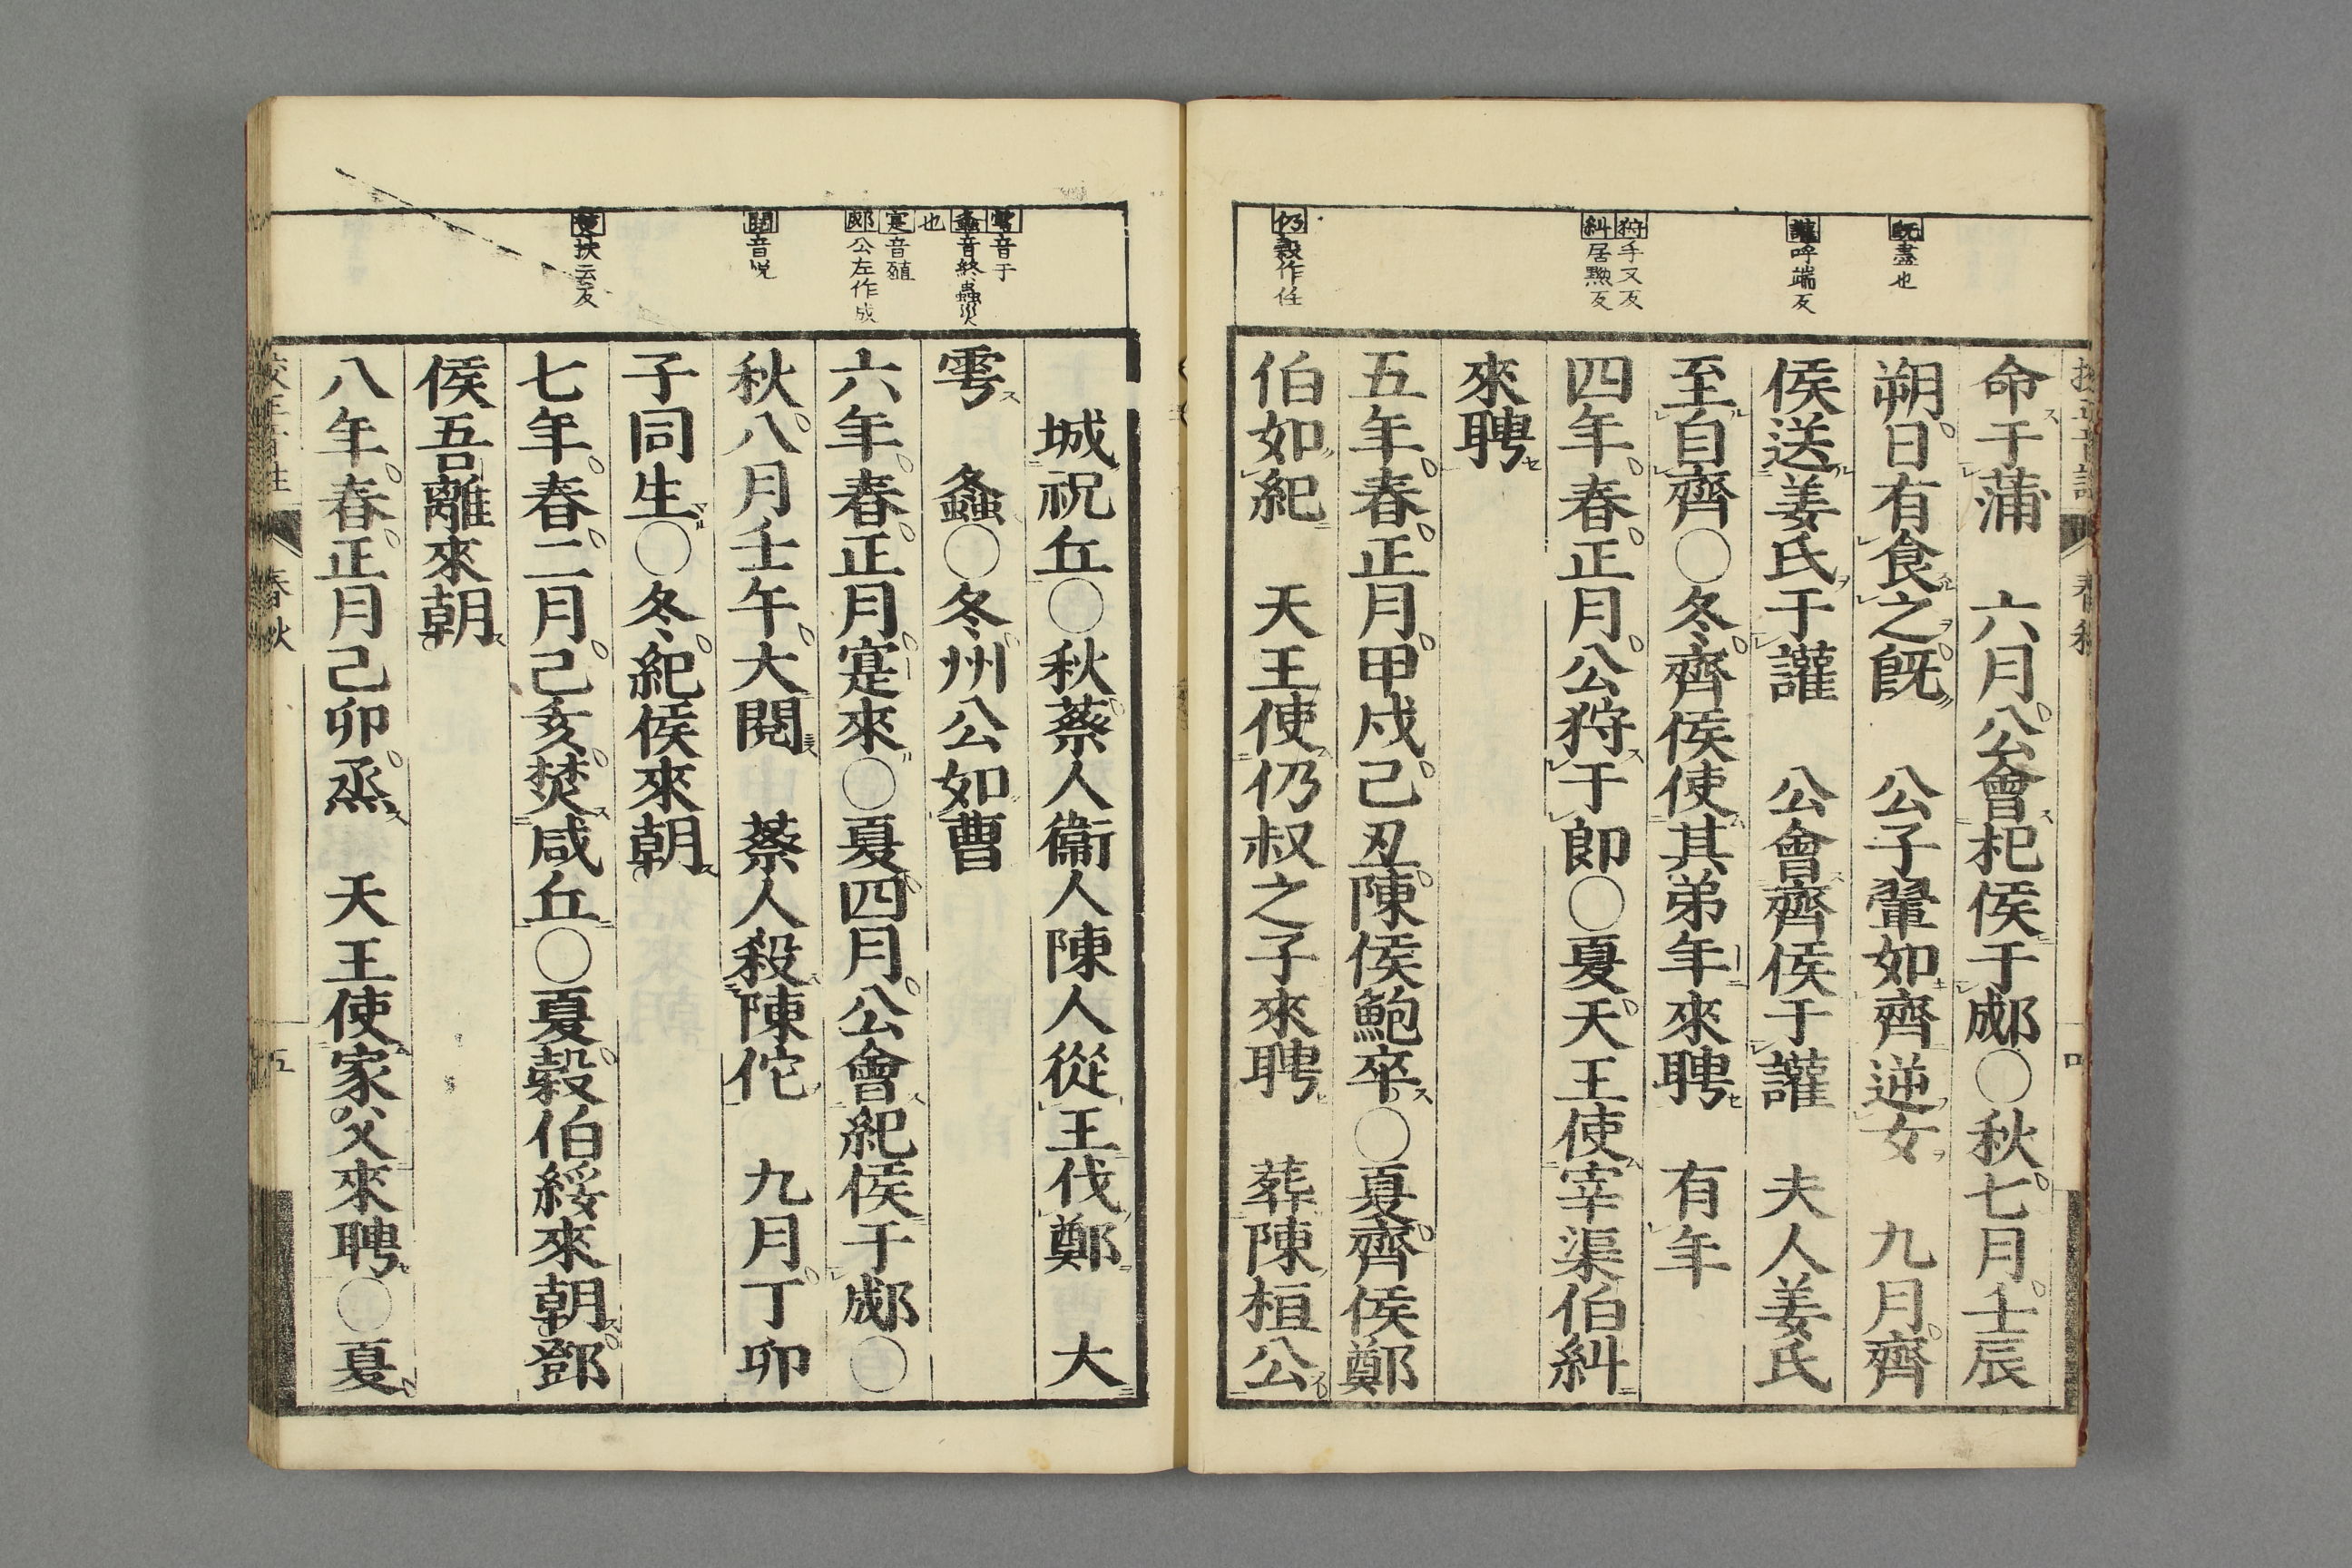 旣盡也
讙呼端反
狩手又反
糾居黝反
仍穀作任
命于蒲　六月公會杞侯于郕○秋七月壬辰
朔日有食之旣　公子翬如齊逆女　九月齊
侯送姜氏于讙　公會齊侯于讙　夫人姜氏
至自齊○冬齊侯使其弟年來聘　有年
四年春正月公狩于郎○夏天王使宰渠伯糾
來聘
五年春正月甲戌己丑陳侯鮑卒○夏齊侯鄭
伯如紀　天王使仍叔之子來聘　葬陳桓公
春秋
雩音于
螽音終蟲災
也
寔音殖
郕公左作成
閱音悅
焚扶云反
城祝丘○秋蔡人衞人陳人從王伐鄭　大
雩　螽○冬州公如曹
六年春正月寔來○夏四月公會紀侯于郕○
秋八月壬午大閱　蔡人殺陳佗　九月丁卯
子同生○冬紀侯來朝
七年春二月己亥焚咸丘○夏穀伯綏來朝鄧
侯吾離來朝
八年春正月己卯烝　天王使家父來聘○夏
春秋
五